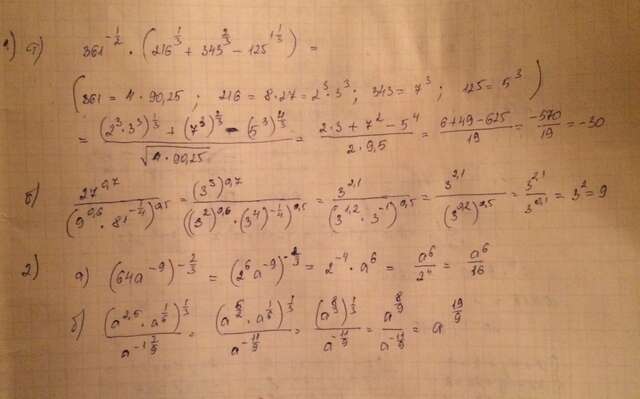 1) а) 361^{-1/2} · (216^{1/3} + 343^{2/3} - 125^{1 1/3}) =
(361 = 4 · 90,25 ; 216 = 8·27 = 2^3·3^3 ; 343 = 7^3 ; 125 = 5^3)
= ((2^3·3^3)^{1/3} + (7^3)^{2/3} - (5^3)^{4/3}) / √(4·90,25) = (2·3 + 7^2 - 5^4) / (2·9,5) = (6+49-625) / 19 = -570/19 = -30
б) 27^{0,7} / (9^{0,6} · 81^{-1/4})^{0,5} = (3^3)^{0,7} / ((3^2)^{0,6} · (3^4)^{-1/4})^{0,5} = 3^{2,1} / (3^{1,2} · 3^{-1})^{0,5} = 3^{2,1} / (3^{0,2})^{0,5} = 3^{2,1} / 3^{0,1} = 3^2 = 9
2) а) (64a^{-9})^{-2/3} = (2^6 a^{-9})^{-2/3} = 2^{-4} · a^6 = a^6 / 2^4 = a^6 / 16
б) (a^{2,5} · a^{1/6})^{1/3} / a^{-1 2/9} = (a^{5/2} · a^{1/6})^{1/3} / a^{-11/9} = (a^{8/3})^{1/3} / a^{-11/9} = a^{8/9} / a^{-11/9} = a^{19/9}